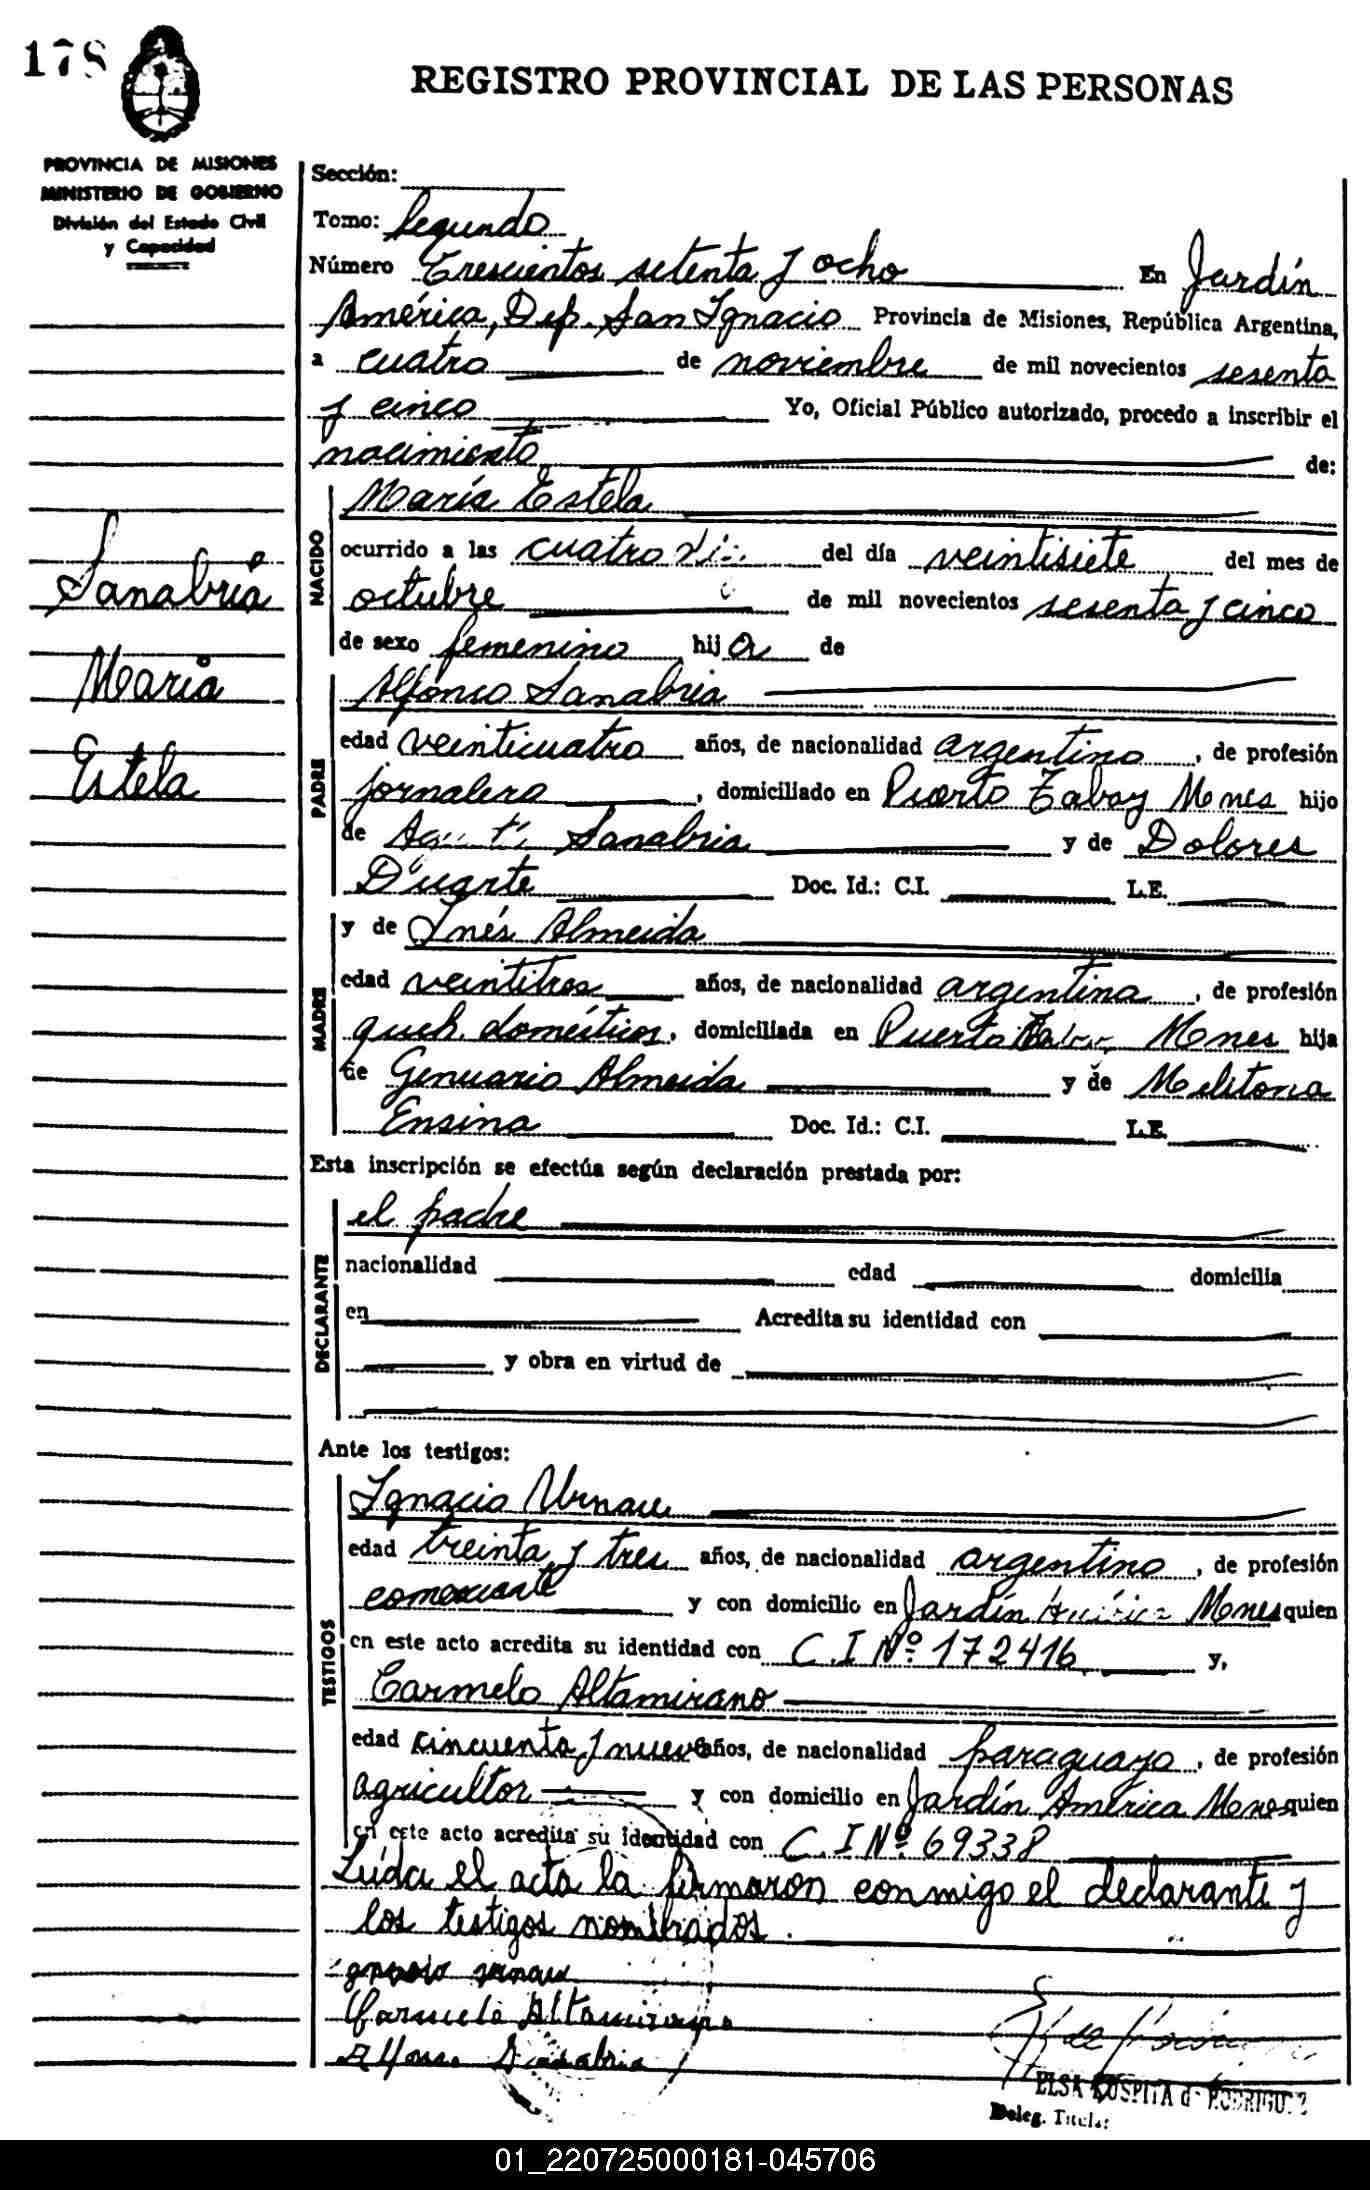 178
REGISTRO PROVINCIAL DE LAS PERSONAS
PROVINCIA DE MISIONES
MINISTERIO DE GOBIERNO
División del Estado Civil
y Capacidad
Sección:
Tomo: Segundo
Número Trescientos setenta y ocho En Jardín
América, Dep. San Ignacio Provincia de Misiones, República Argentina,
a cuatro de noviembre de mil novecientos sesenta
y cinco Yo, Oficial Público autorizado, procedo a inscribir el
nacimiento de:
Sanabria
María
Estela
NACIDO
María Estela
ocurrido a las cuatro del día veintisiete del mes de
octubre de mil novecientos sesenta y cinco
de sexo femenino hija de
PADRE
Alfonso Sanabria
edad veinticuatro años, de nacionalidad argentino, de profesión
jornalero, domiciliado en Puerto Tabay Mnes hijo
de Sanabria y de Dolores
Duarte Doc. Id.: C.I. L.E.
MADRE
y de Inés Almeida
edad veintitres años, de nacionalidad argentina, de profesión
queh. domésticos, domiciliada en Puerto Mnes hija
de Genuario Almeida y de Melitona
Ensina Doc. Id.: C.I. L.E.
Esta inscripción se efectúa según declaración prestada por:
DECLARANTE
el padre
nacionalidad edad domicilia
en Acredita su identidad con
y obra en virtud de
Ante los testigos:
TESTIGOS
Ignacio Urnau
edad treinta y tres años, de nacionalidad argentino, de profesión
comerciante y con domicilio en Jardín América Mnes quien
en este acto acredita su identidad con C.I Nº 172416 y,
Carmelo Altamirano
edad cincuenta y nueve años, de nacionalidad paraguayo, de profesión
agricultor y con domicilio en Jardín América Mnes quien
en este acto acredita su identidad con C.I Nº 69338
Leída el acta la firmaron conmigo el declarante y
los testigos nombrados.
Carmelo Altamirano
Sanabria
ELSA DE RODRIGUEZ
Deleg. Titular
01_220725000181-045706